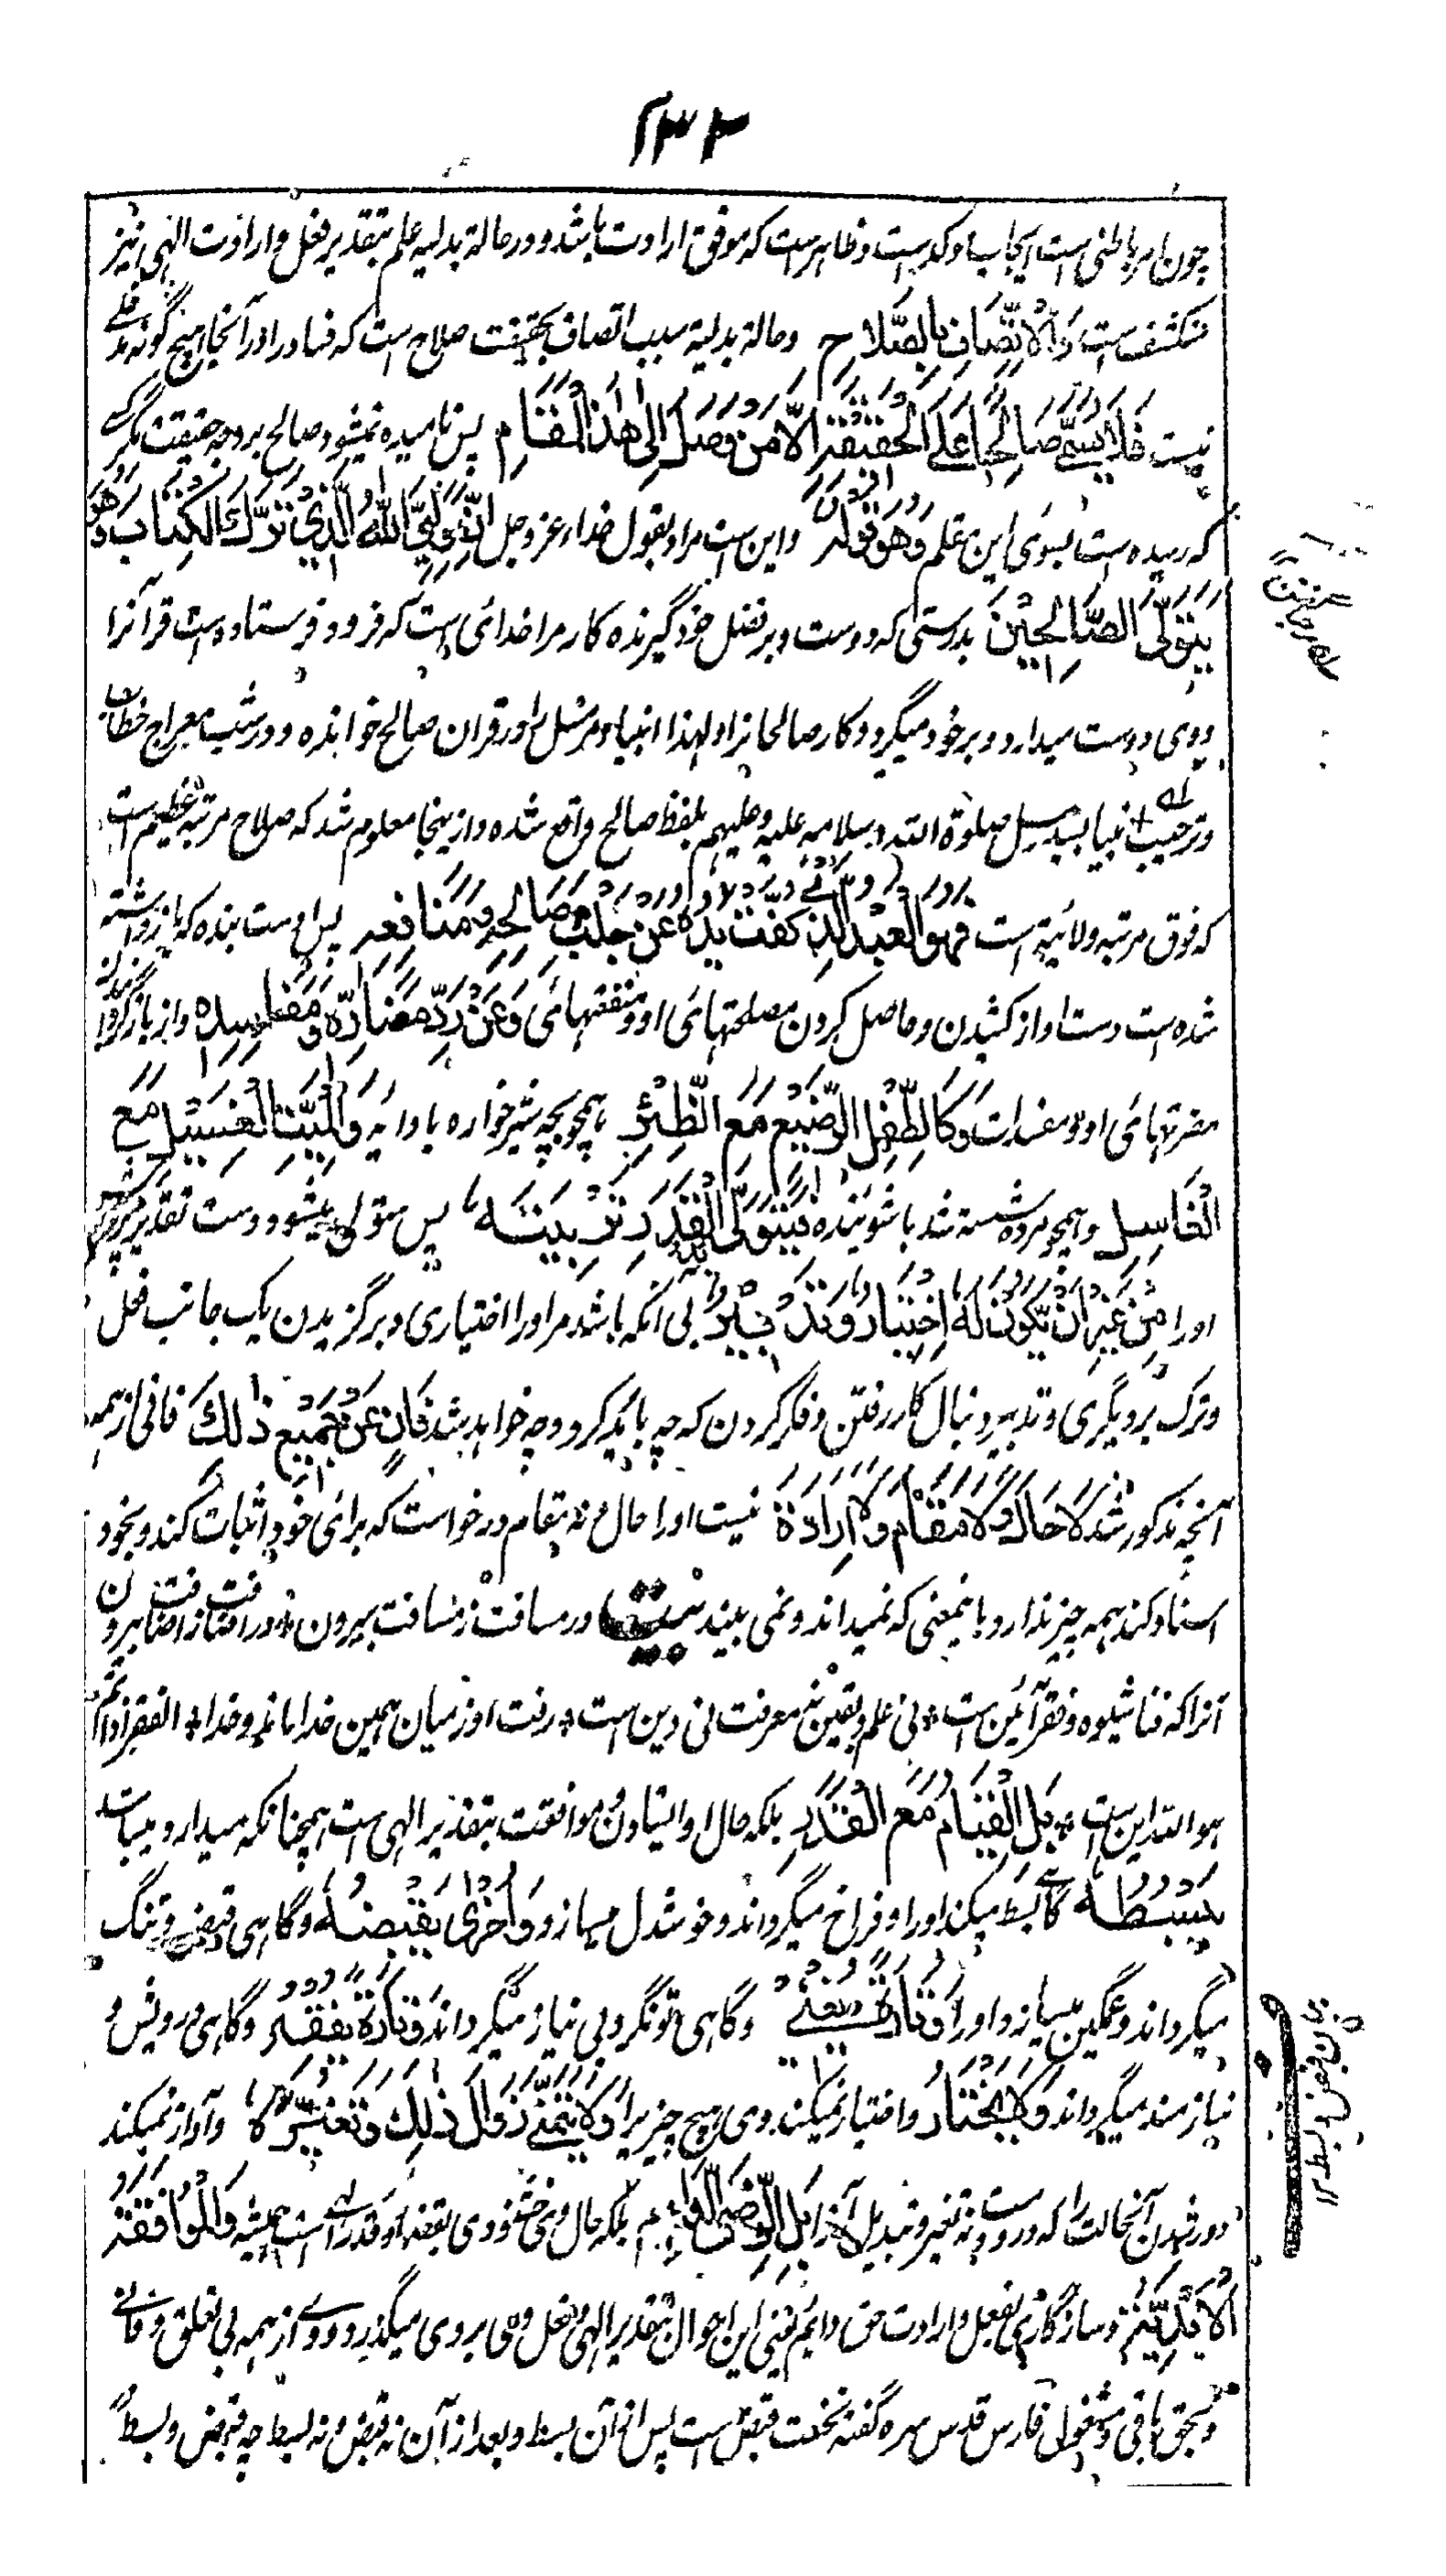 ۲۳۲
چون امر باطنی است ایجاب او کد است و ظاهر است که موفق ارادت باشد و در حالة بدلیه علم بتقدیر فعل و ارادت الهی نیز
منکشف است وَالْاِتِّصَافِ بِالصَّلَاحِ و حالة بدلیة سبب اتصاف بحقیقت صلاح است که فساد را در آنجا هیچ گونه مدخلے
نیست فَلَا یُسَمّٰی صَالِحًا عَلَی الْحَقِیْقَةِ اِلَّا مَنْ وَصَلَ اِلٰی هٰذَا الْمَقَامِ پس نامیده نمیشود صالح بر وجه حقیقت مگر کسے
که رسیده است بسوی این مقام وَهُوَ قَوْلُهٗ و این ست مراد بقول خداء عزوجل اِنَّ وَلِیِّیَ اللهُ الَّذِیْ نَزَّلَ الْکِتَابَ وَهُوَ
یَتَوَلَّی الصَّالِحِیْنَ بدرستی که دوست و بر فضل خود گیرنده کار مرا خدائی است که فرو فرستاده است قرآن را
و وی دوست میدارد و بر خود میگیرد و کار صالحان را و لهذا انبیا و مرسل را در قرآن صالح خوانده و در شب معراج خطاب
و ترحیب انبیا بسید رسل صلوة الله و سلامه علیه و علیهم بلفظ صالح واقع شده و ازینجا معلوم شد که صلاح مرتبه عظیم است
که فوق مرتبه ولایت است فَهُوَ الْعَبْدُ الَّذِیْ کُفَّتْ یَدُهٗ عَنْ جَلْبِ مَصَالِحِهٖ وَمَنَافِعِهٖ پس اوست بنده که باز داشته
شده است دست او از کشیدن و حاصل کردن مصلحتهائی او و منفعتهائی وَعَنْ رَدِّ مَضَارِّهٖ وَمَفَاسِدِهٖ و از باز گردانیدن
مضرتهائی او و مفسدات وَکَالطِّفْلِ الرَّضِیْعِ مَعَ الظِّئْرِ همچو بچه شیر خواره با دایه وَالْمَیِّتِ الْغَسِیْلِ مَعَ
الْغَاسِلِ و همچو مرده شسته شده با شوینده فَیَتَوَلَّی الْقَدَرُ تَرْبِیَتَهٗ پس متولی میشود دست تقدیر پرورش
او را مِنْ غَیْرِ اَنْ یَّکُوْنَ لَهٗ اِخْتِیَارٌ وَتَدْبِیْرٌ بی آنکه باشد مر او را اختیاری و برگزیدن یک جانب فعل
و ترک بر دیگری و تدبیر دنبال کار رفتن و فکر کردن که چه باید کرد و چه خواهد شد فَانٍ عَنْ جَمِیْعِ ذٰلِکَ فانی از همه
آنچه مذکور شد لَا حَالَ وَلَا مَقَامَ وَلَا اِرَادَةَ نیست او را حال و نه مقام و نه خواست که برائی خود اثبات کند و بخود
اسناد کند همه چیز ندارد باینمعنی که نمیداند و نمی بیند بیت در مسافت ز مسافت بیرون ٭ در اضافت ز اضافت بیرون
آنرا که فنا شیوه و فقر آئین است ٭ نی علم و یقین نی معرفت نی دین است ٭ رفت او ز میان همین خدا ماند خدا ٭ الفقر اذا تم
هو الله این است ٭ بَلِ الْقِیَامُ مَعَ الْقَدَرِ بلکه حال او ایستادن و موافقت بتقدیر الهی ست همچنانکه میدارد و میباشد
یَبْسُطُهٗ گاهے بسط میکند او را و فراخ میگرداند و خوشدل میسازد وَاُخْرٰی یَقْبِضُهٗ و گاهی قبض و تنگ
میگرداند و غمگین میسازد او را فَتَارَةً یُغْنِیْهِ و گاهی تونگر و بی نیاز میگرداند وَتَارَةً یُفْقِرُهٗ و گاهی درویش و
نیازمند میگرداند وَلَا یَخْتَارُ و اختیار نمیکند وی هیچ چیز را وَلَا یَتَمَنّٰی زَوَالَ ذٰلِکَ وَتَغَیُّرَهٗ و آرزو نمیکند
دور شدن آنحالت را که در وست و نه تغیر و تبدیل آنرا بَلِ الرِّضَی الدَّائِمُ بلکه حال وی خشنودی بقضا و قدر الهی ست همیشه وَالْمُوَافَقَةُ
الْاَبَدِیَّةُ و سازگاری بفعل و ارادت حق دائم یعنی این احوال بتقدیر الهی و فعل وی بر وی میگذرد و وے از همه بی تعلق و فانے
و بحق باقی و مشغول فارس قدس سره گفته نخست قبض است پس ازان بسط و بعد از آن نه قبض و نه بسط چه قبض و بسط
بیان قبض و بسط ۱۲